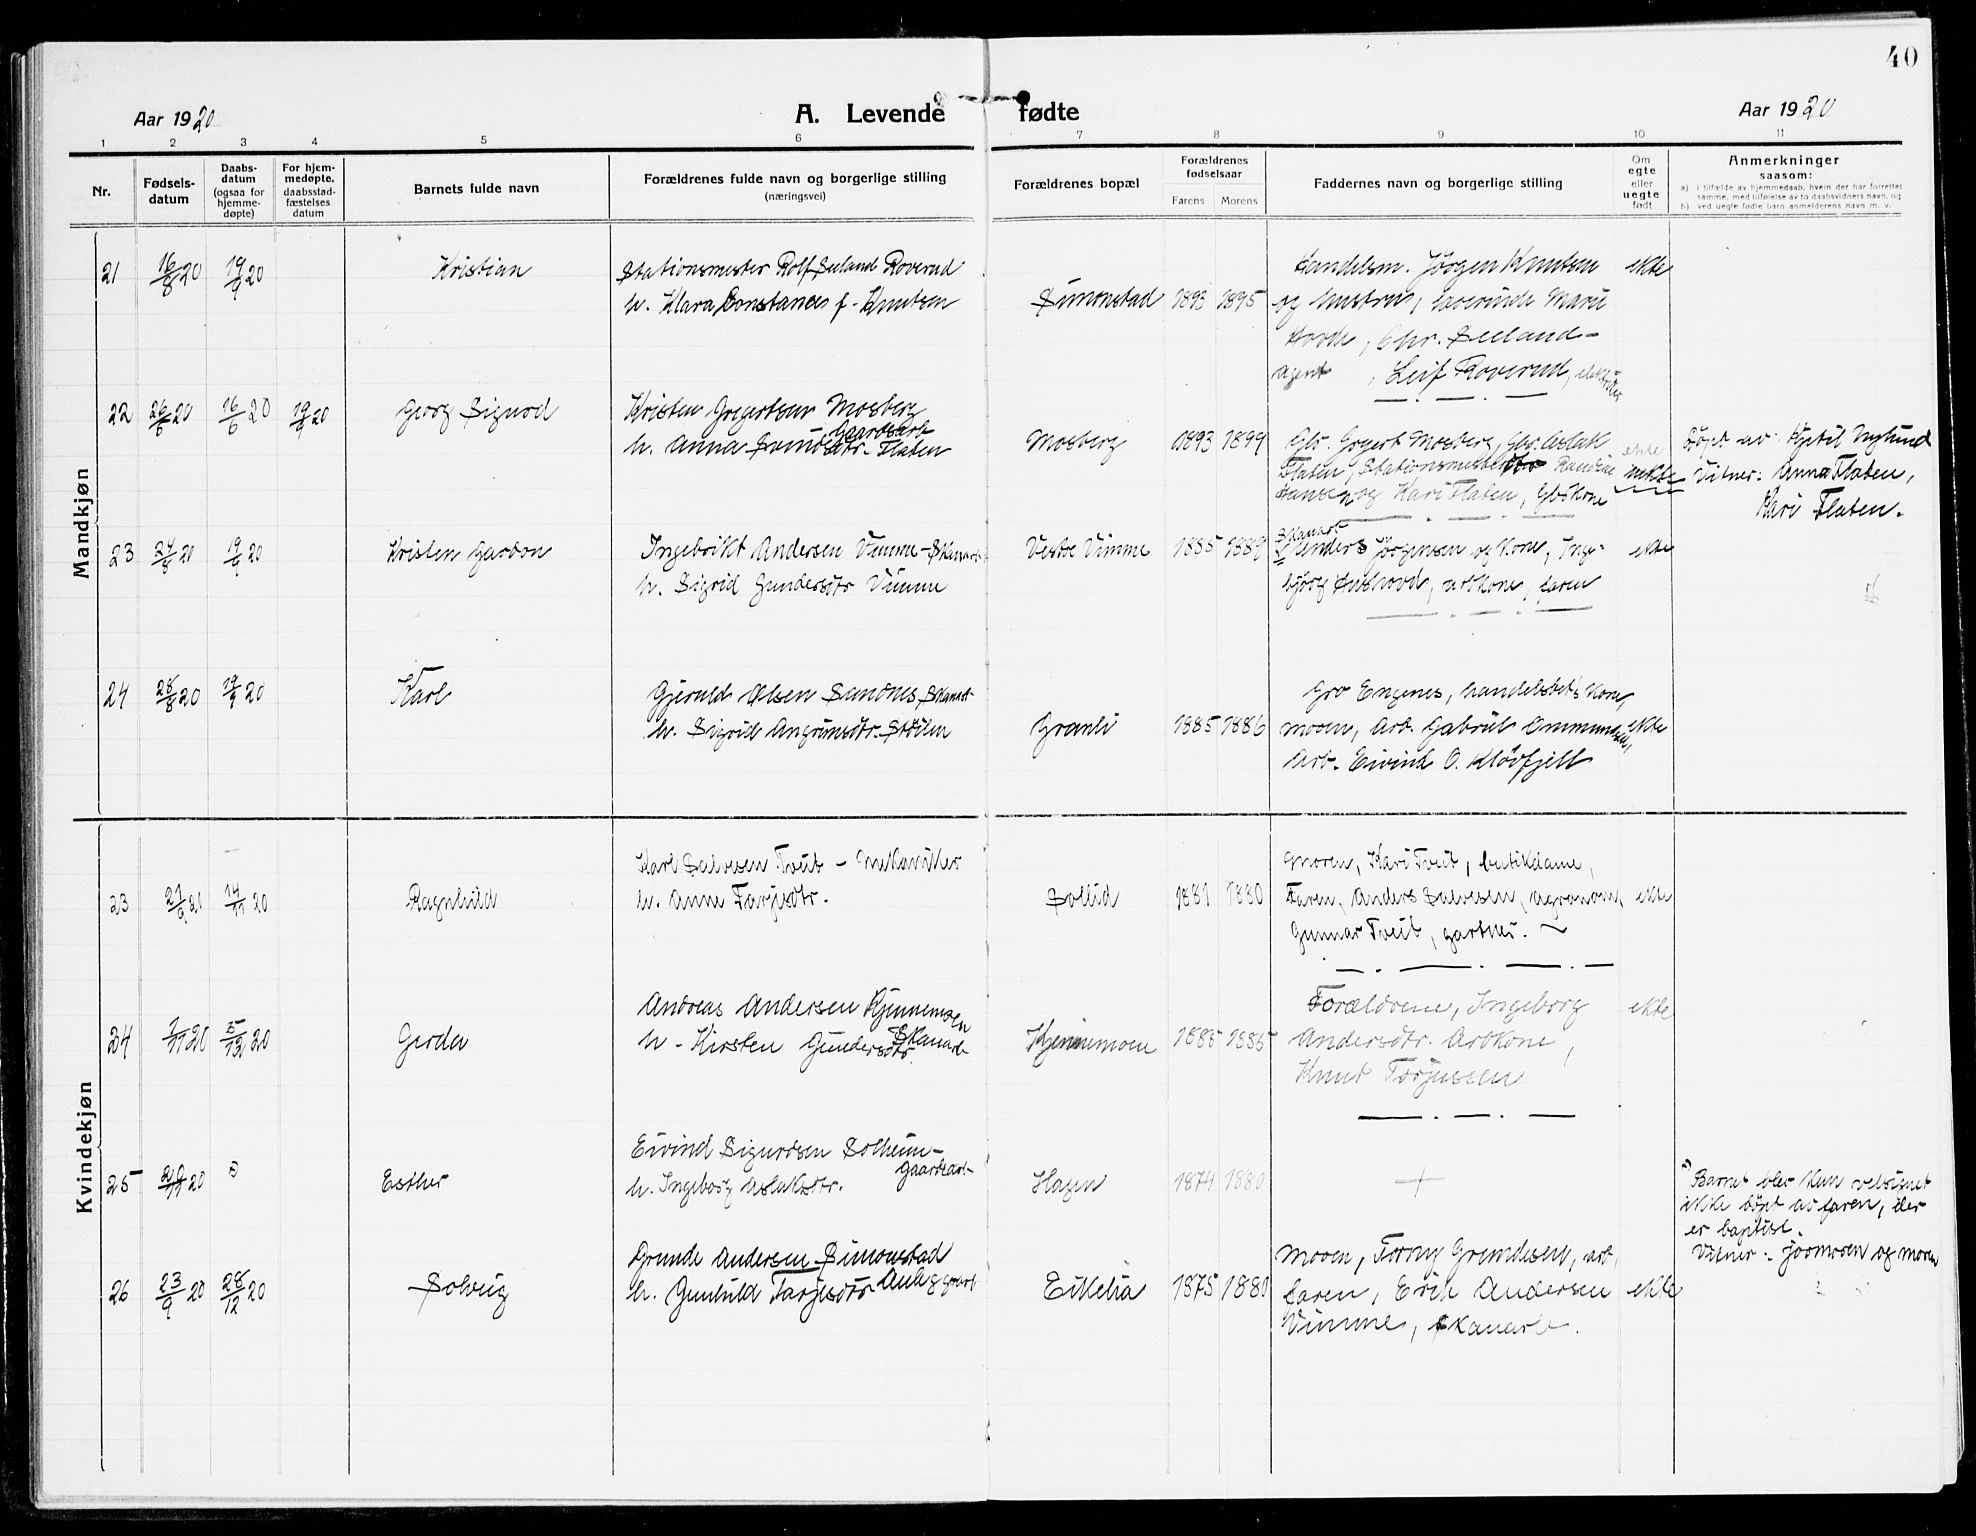 40
Aar 1920 A. Levende fødte Aar 1920
1 2 3 4 5 6 7 8 9 10 11
Nr.
Fødsels-
datum
Daabs-
datum
(ogsaa for
hjemme-
døpte)
For hjem-
medøpte,
daabsstad-
fæstelses
datum
Barnets fulde navn
Forældrenes fulde navn og borgerlige stilling
(næringsvei)
Forældrenes bopæl
Forældrenes
fødselsaar
Farens Morens
Faddernes navn og borgerlige stilling
Om
egte
eller
uegte
født
Anmerkninger
saasom:
a) i tilfælde av hjemmedaab, hvem der har forrettet
samme, med tilføielse av to daabsvidners navn, og
b) ved uegte fødte barn anmelderens navn m. v.
Mandkjøn
21 16/8 20 19/9 20 Kristian
Stationsmester Rolf Seeland Roverud
h. Klara Constance f. Knutsen
Simonstad 1893 1895
Handelsm. Jørgen Knutsen
og hustru, Marie
Hovde, Chr. Seeland-
agent, Leif Roverud,
ekte
22 26/5 20 16/6 20 19/9 20 Georg Sigurd
Kristen Gregertsen Mosberg
Gaardsarb
h. Anna Svendsdtr. Flaten
Mosberg 1893 1899
Gbr. Gregert Mosberg, Gbr. Aslak
Flaten, Stationsmester Randine
Hansen og Kari Flaten, Gbs kone
ekte
uekte
Døpt av: Kjetil Nyglund
Vitner: Anna Flaten,
Kari Flaten.
23 24/8 20 19/9 20 Kristen Gardon
Ingebrikt Andersen Vimme - Skanarb
h. Sigrid Gundersdtr Vimme
Vestre Vimme 1885 1889
Skanarb
Anders Jørgensen og kone, Inge-
bjørg, arbkone, faren
ekte
24 28/8 20 19/9 20 Karl
Gjeruld Olsen Sandnes, Skanarb-
h. Sigrid Angrimsdtr. Stølen
Granli 1885 1886
Gro Engenes, handelsbets kone,
moren, Arb. Gabriel Emmundsen,
Arb. Eivind O. Kløvfjell
ekte
Kvindekjøn
23 27/9 20 14/11 20 Ragnhild
Karl Salvesen Tveit - mekaniker
h. Anne Tarjeisdtr.
Sollid 1881 1880
Moren, Kari Tveit, butikdame,
Faren, Anders Salvesen, agronom,
Gunnar Tveit, gartner.
ekte
24 7/11 20 5/12 20 Gerda
Andreas Andersen Kjennemoen
Skanarb
h - Kirsten Gundersdtr
Kjennemoen 1885 1885
Forældrene, Ingeborg
Andersdtr. Arbkone,
Knut Torjussen
ekte
25 20/11 20 Esther
Eivind Sigurdsen Solheim -
Gaardsarb
h. Ingeborg Aslaksdtr.
Hagen 1874 1880
+
Barnet blev kun velsignet
ikke døpt av faren, der
er baptist.
Vitner: jormoren og moren
26 23/9 20 28/12 20 Solveig
Grunde Andersen Simonstad
h. Gunhild Tarjeisdtr
Eikelia 1875 1880
Moren, Torny Grundesen, arb,
faren, Erik Andersen
Vimme, skanarb.
ekte